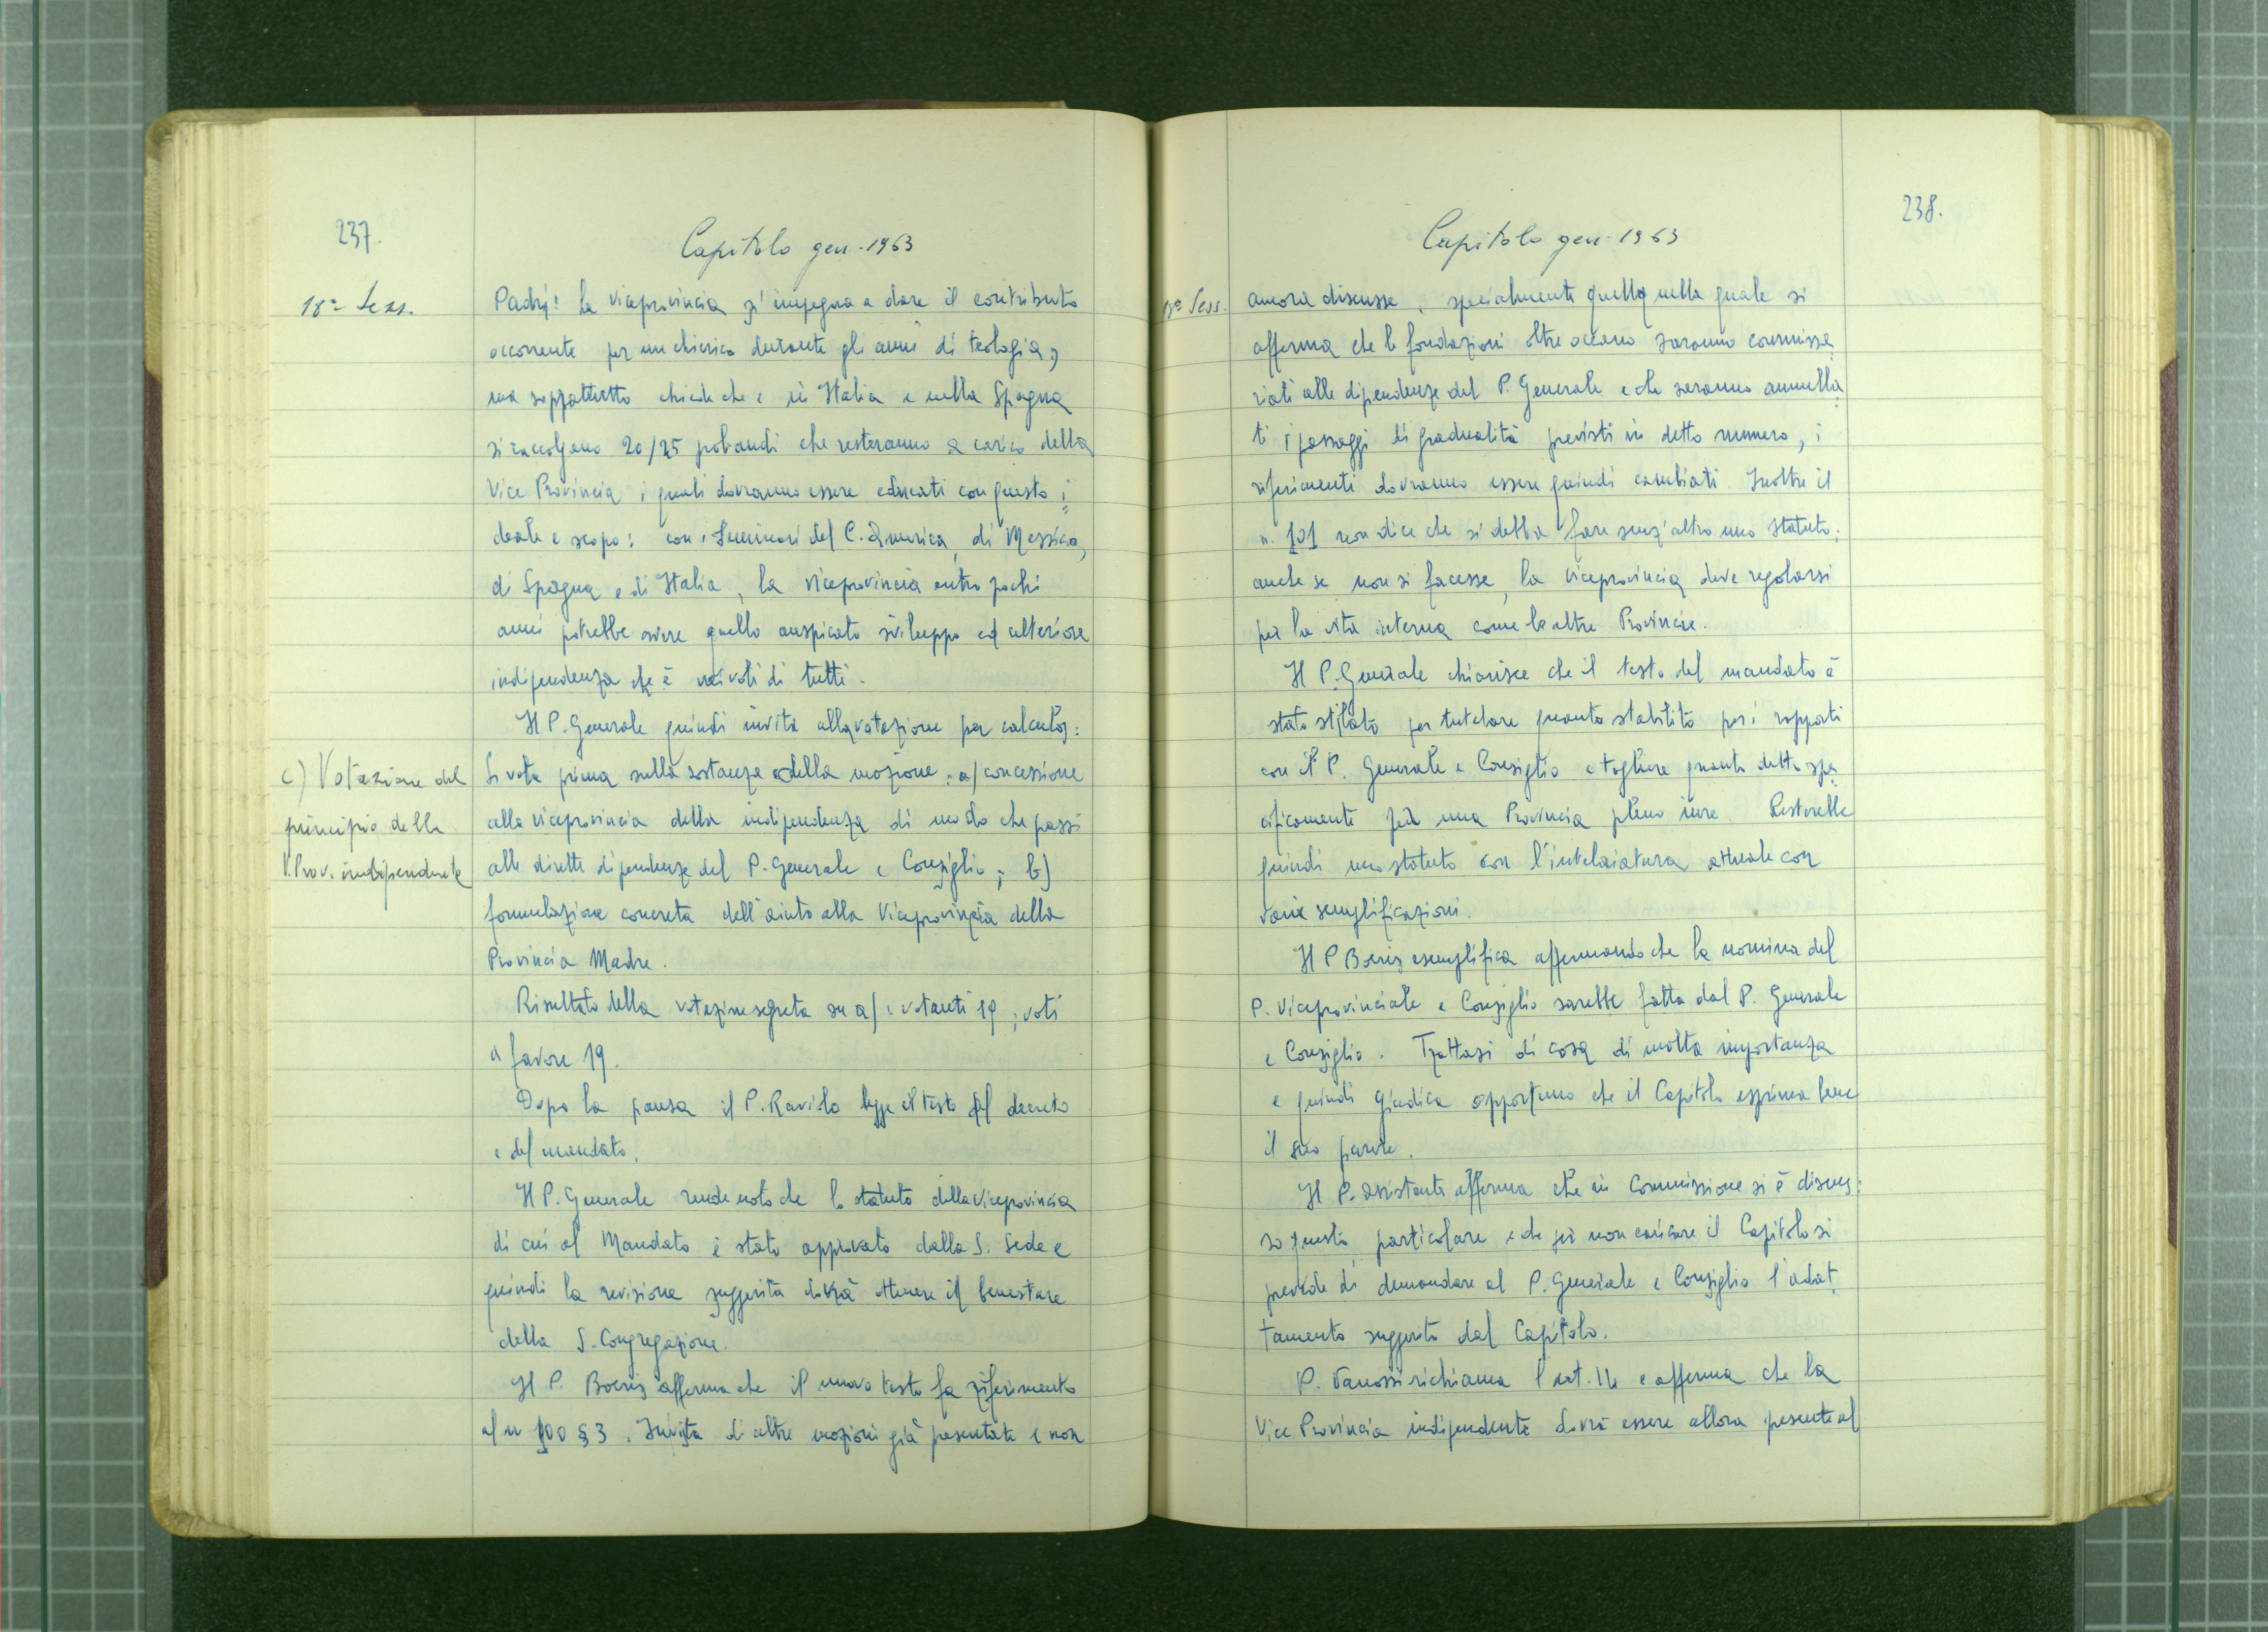 237.
Capitolo gen. 1963
18ª Sess.
Padri! La viceprovincia s'impegna a dare il contributo
occorrente per un chierico durante gli anni di teologia,
ma soprattutto chiede che e in Italia e nella Spagna
si raccolgano 20/25 probandi che resteranno a carico della
Vice Provincia i quali dovranno essere educati con questo i=
deale e scopo: con i Seminari del C. America, di Messico,
di Spagna e di Italia, la viceprovincia entro pochi
anni potrebbe avere quello auspicato sviluppo ed ulteriore
indipendenza che è nei voti di tutti.
Il P. Generale quindi invita alla votazione per calculos:
c) Votazione del
principio della
V. Prov. indipendente
Si vota prima sulla sostanza della mozione: a) concessione
alla viceprovincia della indipendenza di modo che passi
alle dirette dipendenze del P. Generale e Consiglio; b)
formulazione concreta dell'aiuto alla Viceprovincia della
Provincia Madre.
Risultato della votazione segreta su a): votanti 19; voti
a favore 19.
Dopo la pausa il P. Raviolo legge il testo del decreto
e del mandato.
Il P. Generale rende noto che lo statuto della viceprovincia
di cui al Mandato è stato approvato dalla S. Sede e
quindi la revisione suggerita dovrà ottenere il benestare
della S. Congregazione.
Il P. Boeris afferma che il nuovo testo fa riferimento
al n 100 § 3. In vista di altre mozioni già presentate e non
238.
Capitolo gen. 1963
18ª Sess.
ancora discusse, specialmente quella nella quale si
afferma che le fondazioni oltre oceano saranno commissa=
riati alle dipendenze del P. Generale e che saranno annulla=
ti i passaggi di gradualità previsti in detto numero, i
riferimenti dovranno essere quindi cambiati. Inoltre il
n. 101 non dice che si debba fare senz'altro uno statuto;
anche se non si facesse, la viceprovincia deve regolarsi
per la vita interna come le altre Provincie.
Il P. Generale chiarisce che il testo del mandato è
stato stilato per tutelare quanto stabilito per i rapporti
con il P. Generale e Consiglio e togliere quanto detto spe=
cificamente per una Provincia pleno iure. Resterebbe
quindi uno statuto con l'intelaiatura attuale con
varie semplificazioni.
Il P Boeris esemplifica affermando che la nomina del
P. Viceprovinciale e Consiglio sarebbe fatta dal P. Generale
e Consiglio. Trattasi di cosa di molta importanza
e quindi giudica opportuno che il Capitolo esprima bene
il suo parere.
Il P. Assistente afferma che in Commissione si è discus=
so questo particolare e che per non caricare il Capitolo si
prevede di demandare al P. Generale e Consiglio l'adat=
tamento suggerito dal Capitolo.
P. Vanossi richiama l'art. 14 e afferma che la
Vice Provincia indipendente dovrà essere allora presente al